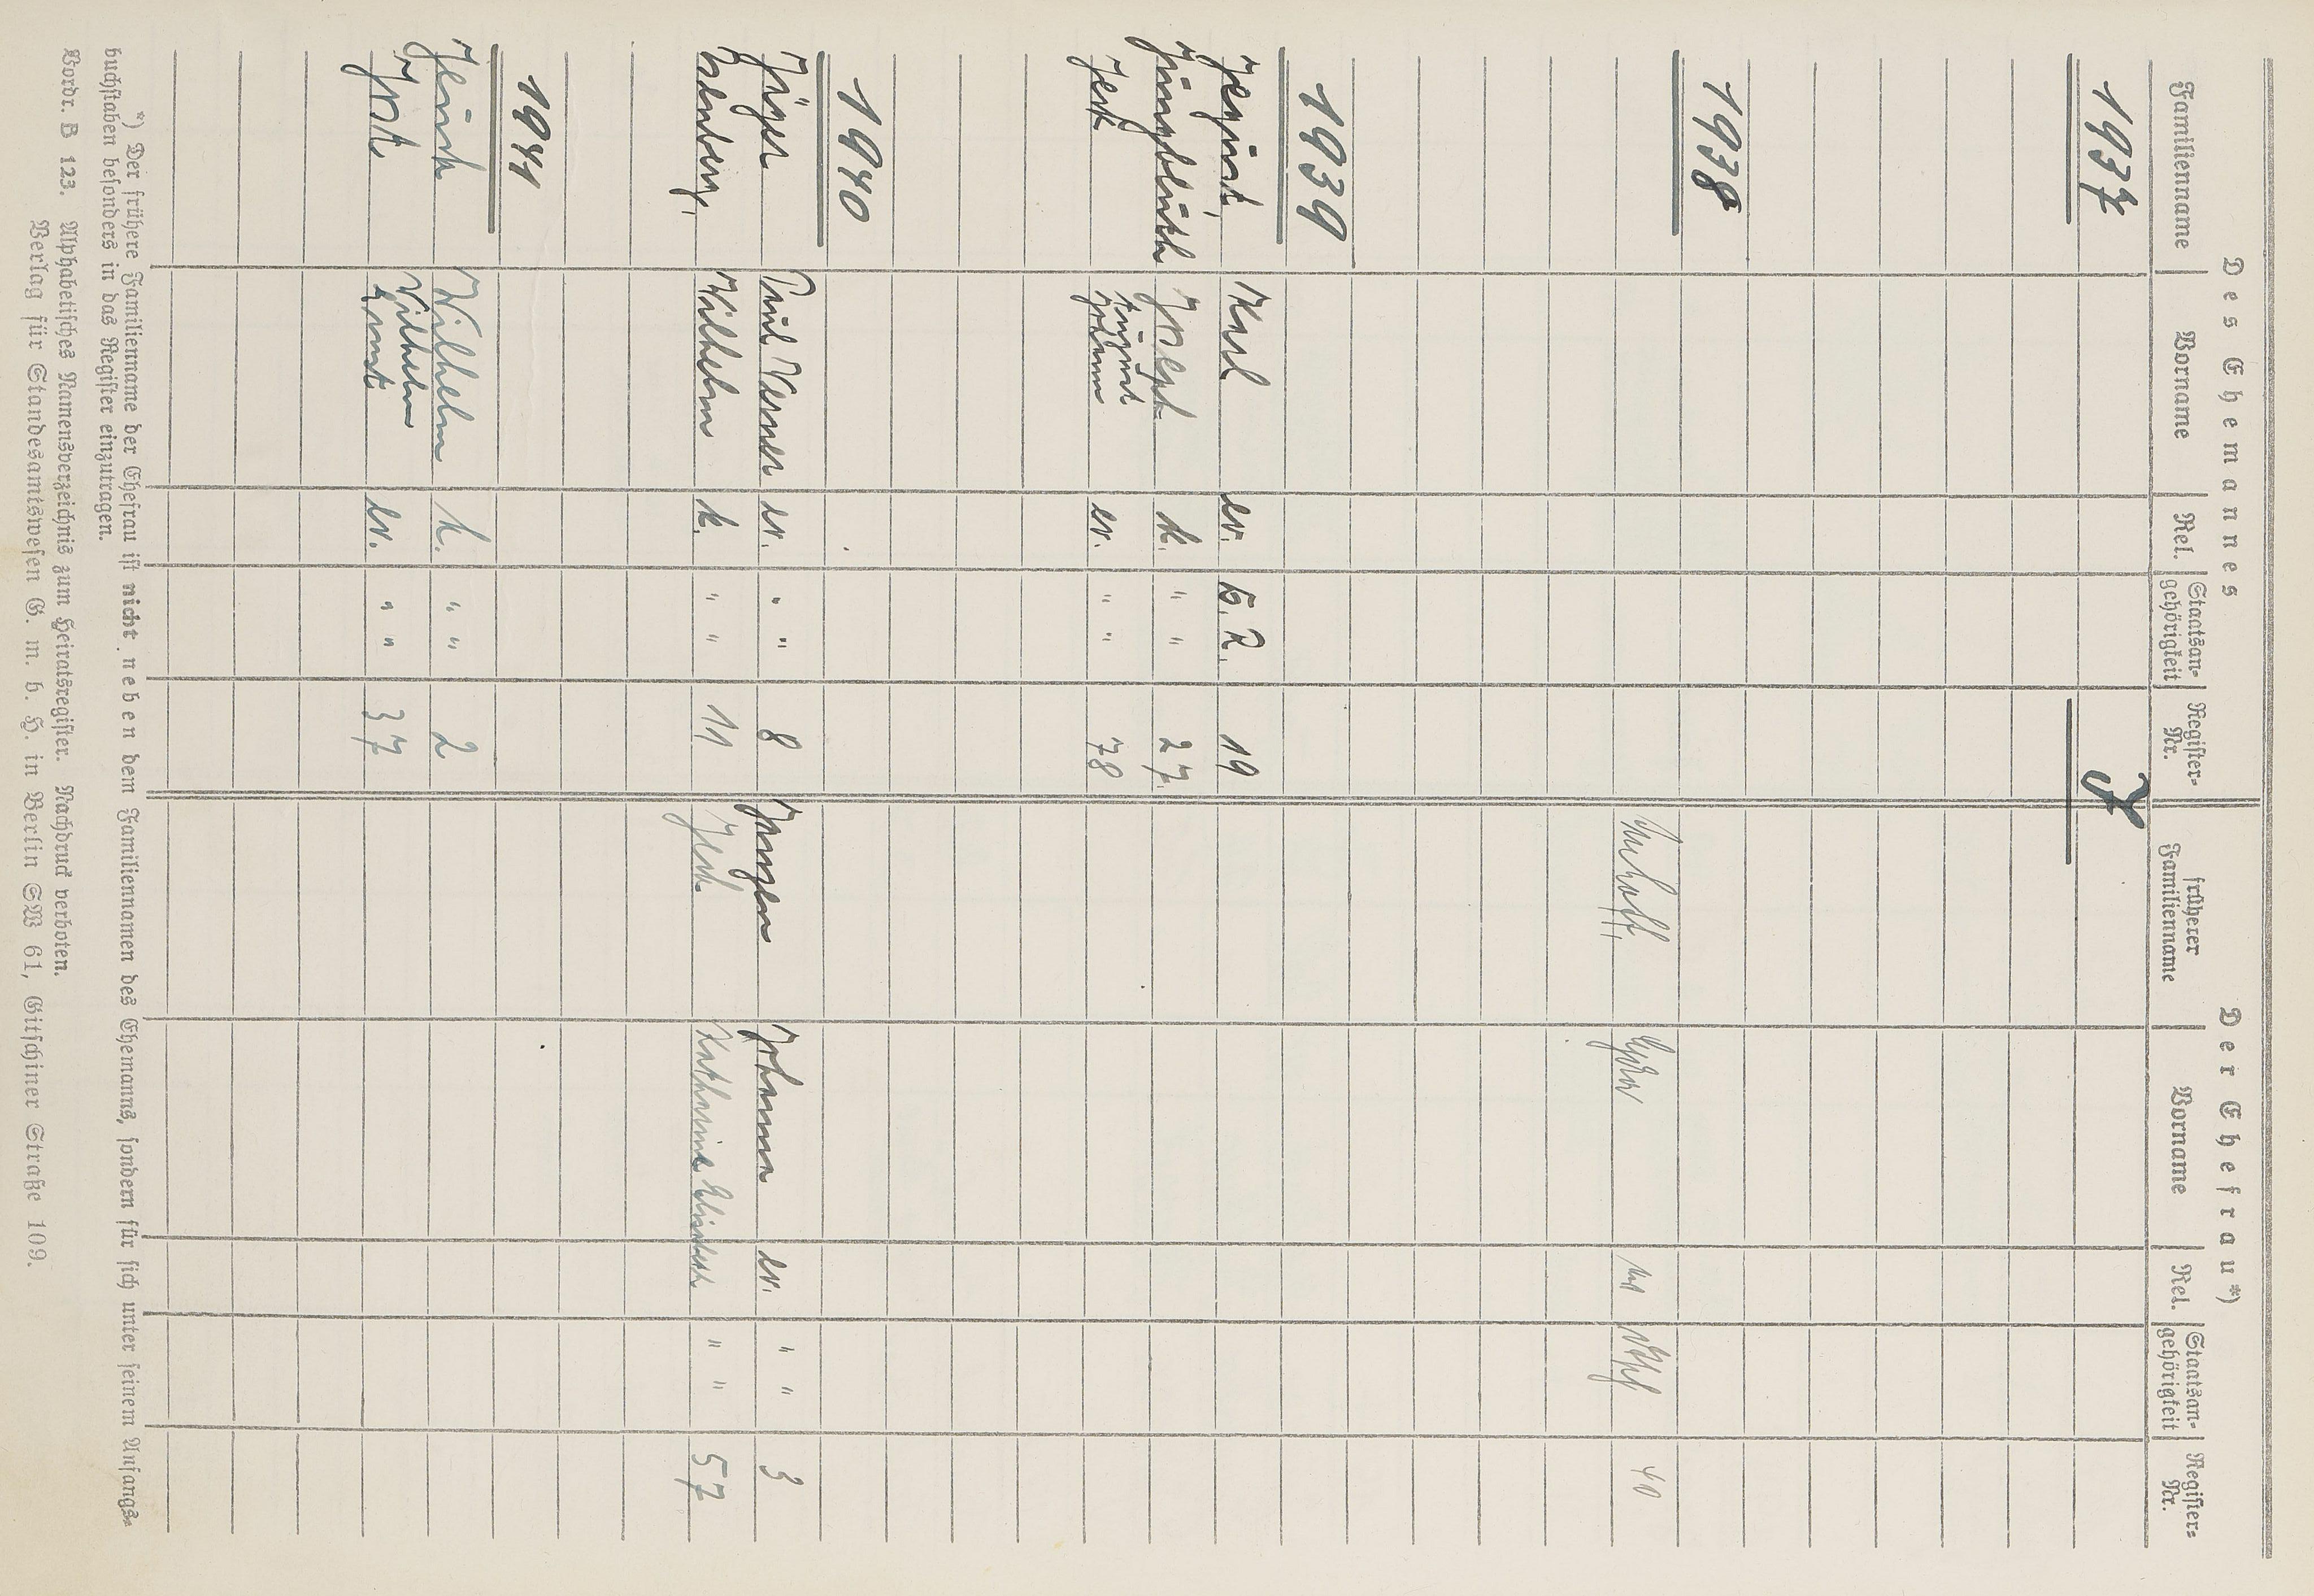 Des Ehemannes Der Ehefrau*)
Familienname Vorname Rel. Staatsan- gehörigkeit Register- Nr. früherer Familienname Vorname Rel. Staatsan- gehörigkeit Register- Nr.
1937 J
1938
40
1939
Karl ev. D. R. 19
Jüngblüth Josef k. " " 27.
Jesk August Johann ev. " " 78
1940
Jäger Paul Werner ev. " " 8 Janzen Johanna ev. " " 3
Wilhelm k. " " 11 Jesk Katharina Elisabeth " " 57
1941
Wilhelm k. " " 2
Wilhelm Ernst ev. " " 37
*) Der frühere Familienname der Ehefrau ist nicht neben dem Familiennamen des Ehemanns, sondern für sich unter seinem Anfangs-
buchstaben besonders in das Register einzutragen.
Vordr. B 123. Alphabetisches Namensverzeichnis zum Heiratsregister. Nachdruck verboten.
Verlag für Standesamtswesen G. m. b. H. in Berlin SW 61, Gitschiner Straße 109.